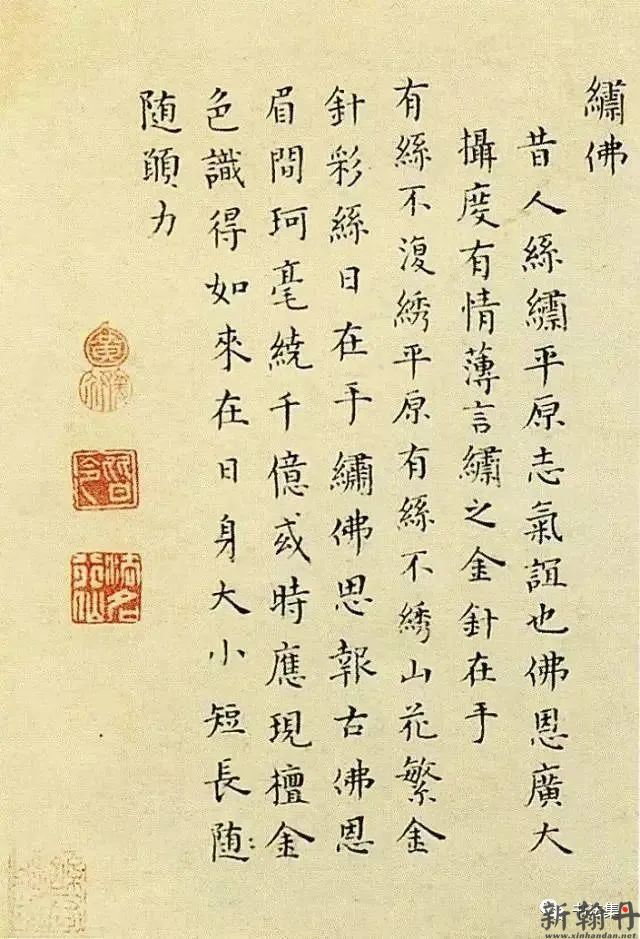 繡佛
昔人絲繡平原志氣誼也佛恩廣大
攝度有情薄言繡之金針在手
有絲不復綉平原有絲不綉山花繁金
針彩絲日在手繡佛思報古佛恩
眉間珂毫繞千億或時應現檀金
色識得如來在日身大小短長随:
随願力
新翰丹
www.xinhandan.net